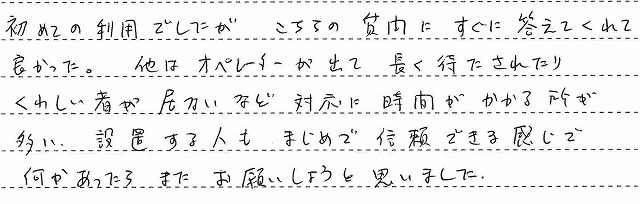 初めての利用でしたが こちらの質内にすぐに答えてくれて
良かった。 他はオペレーターが出て 長く待たされたり
くわしい者が居ないなど 対応に時間がかかる所が
多い. 設置する人も まじめで信頼できる感じで
何かあったら またお願いしようと思いました.